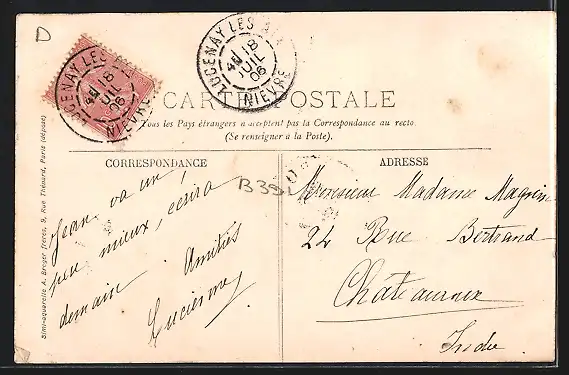 D
LUCENAY LES AIX
18
JUIL
06
NIEVRE
LUCENAY LES AIX
18
JUIL
06
NIEVRE
CARTE POSTALE
Tous les Pays étrangers n'acceptent pas la Correspondance au recto
(Se renseigner à la Poste).
CORRESPONDANCE
Jean va un
peu mieux, écrira
demain Amitiés
ADRESSE
Monsieur Madame
24 Rue Bertrand
Châteauroux
Indre
Simi-aquarelle A. Breger frères, 9, Rue Thénard, Paris (déposé)